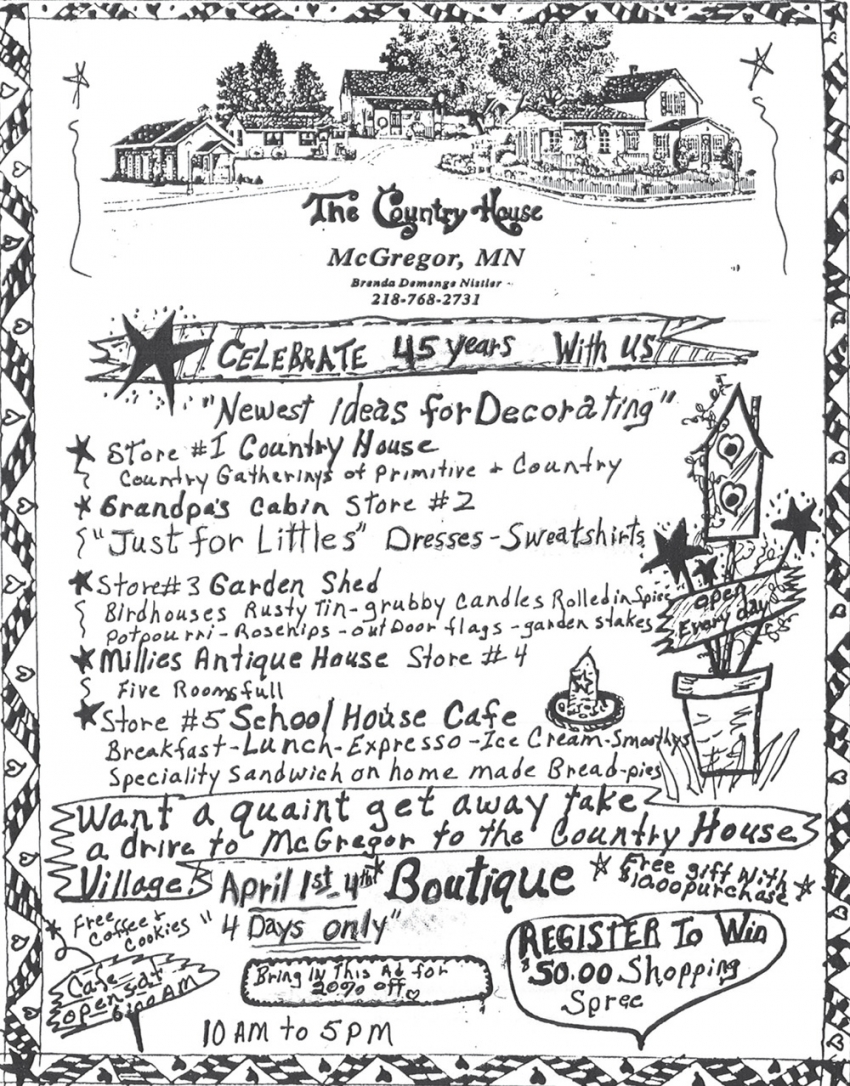 The Country House
McGregor, MN
Brenda Demenge Nistler
218-768-2731
CELEBRATE 45 years With us
"Newest ideas for Decorating"
Store #1 Country House
Country Gatherings of Primitive + Country
Grandpa's Cabin Store #2
"Just for Littles" Dresses - Sweatshirts
Store #3 Garden Shed
Birdhouses Rusty Tin - grubby Candles Rolled in Spice
potpourri - Rosehips - outDoor flags - garden stakes
open
Every day
Millies Antique House Store #4
Five Rooms full
Store #5 School House Cafe
Breakfast - Lunch - Expresso - Ice Cream - Smoothys
Speciality Sandwich on home made Bread - pies
Want a quaint get away take
a drive to McGregor to the Country House
Village!
April 1st - 4th
Boutique
Free gift with
$10.00 purchase
Free
Coffee +
Cookies
"4 Days only"
Cafe
opens at
6:00 AM
Bring In This Ad for
20% off
REGISTER To Win
$50.00 Shopping
Spree
10 AM to 5 PM